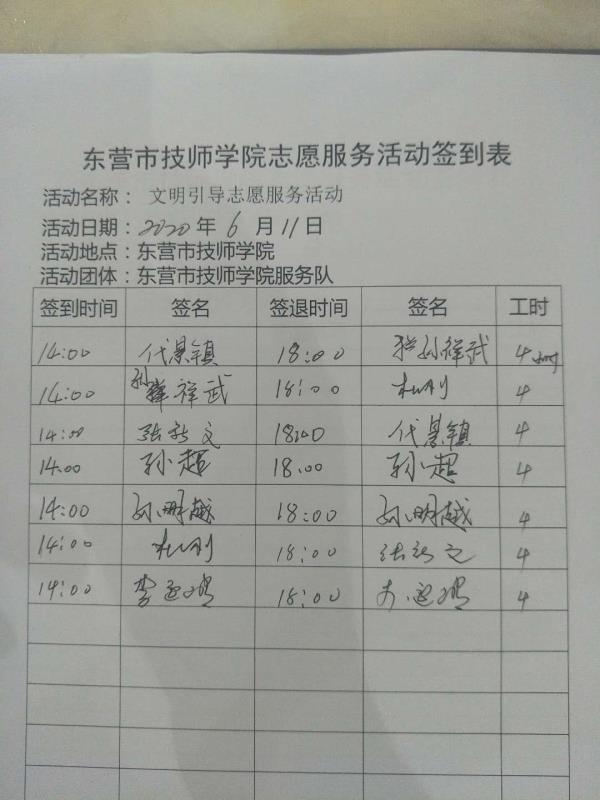 东营市技师学院志愿服务活动签到表
活动名称： 文明引导志愿服务活动
活动日期：2020年 6 月 11日
活动地点：东营市技师学院
活动团体：东营市技师学院服务队
签到时间 签名 签退时间 签名 工时
14:00 代景镇 18:00 孙祥武 4小时
14:00 孙祥武 18:00 杜刚 4
14:00 张新文 18:00 代景镇 4
14:00 孙超 18:00 孙超 4
14:00 孙明越 18:00 孙明越 4
14:00 杜刚 18:00 张新文 4
14:00 李 18:00 4